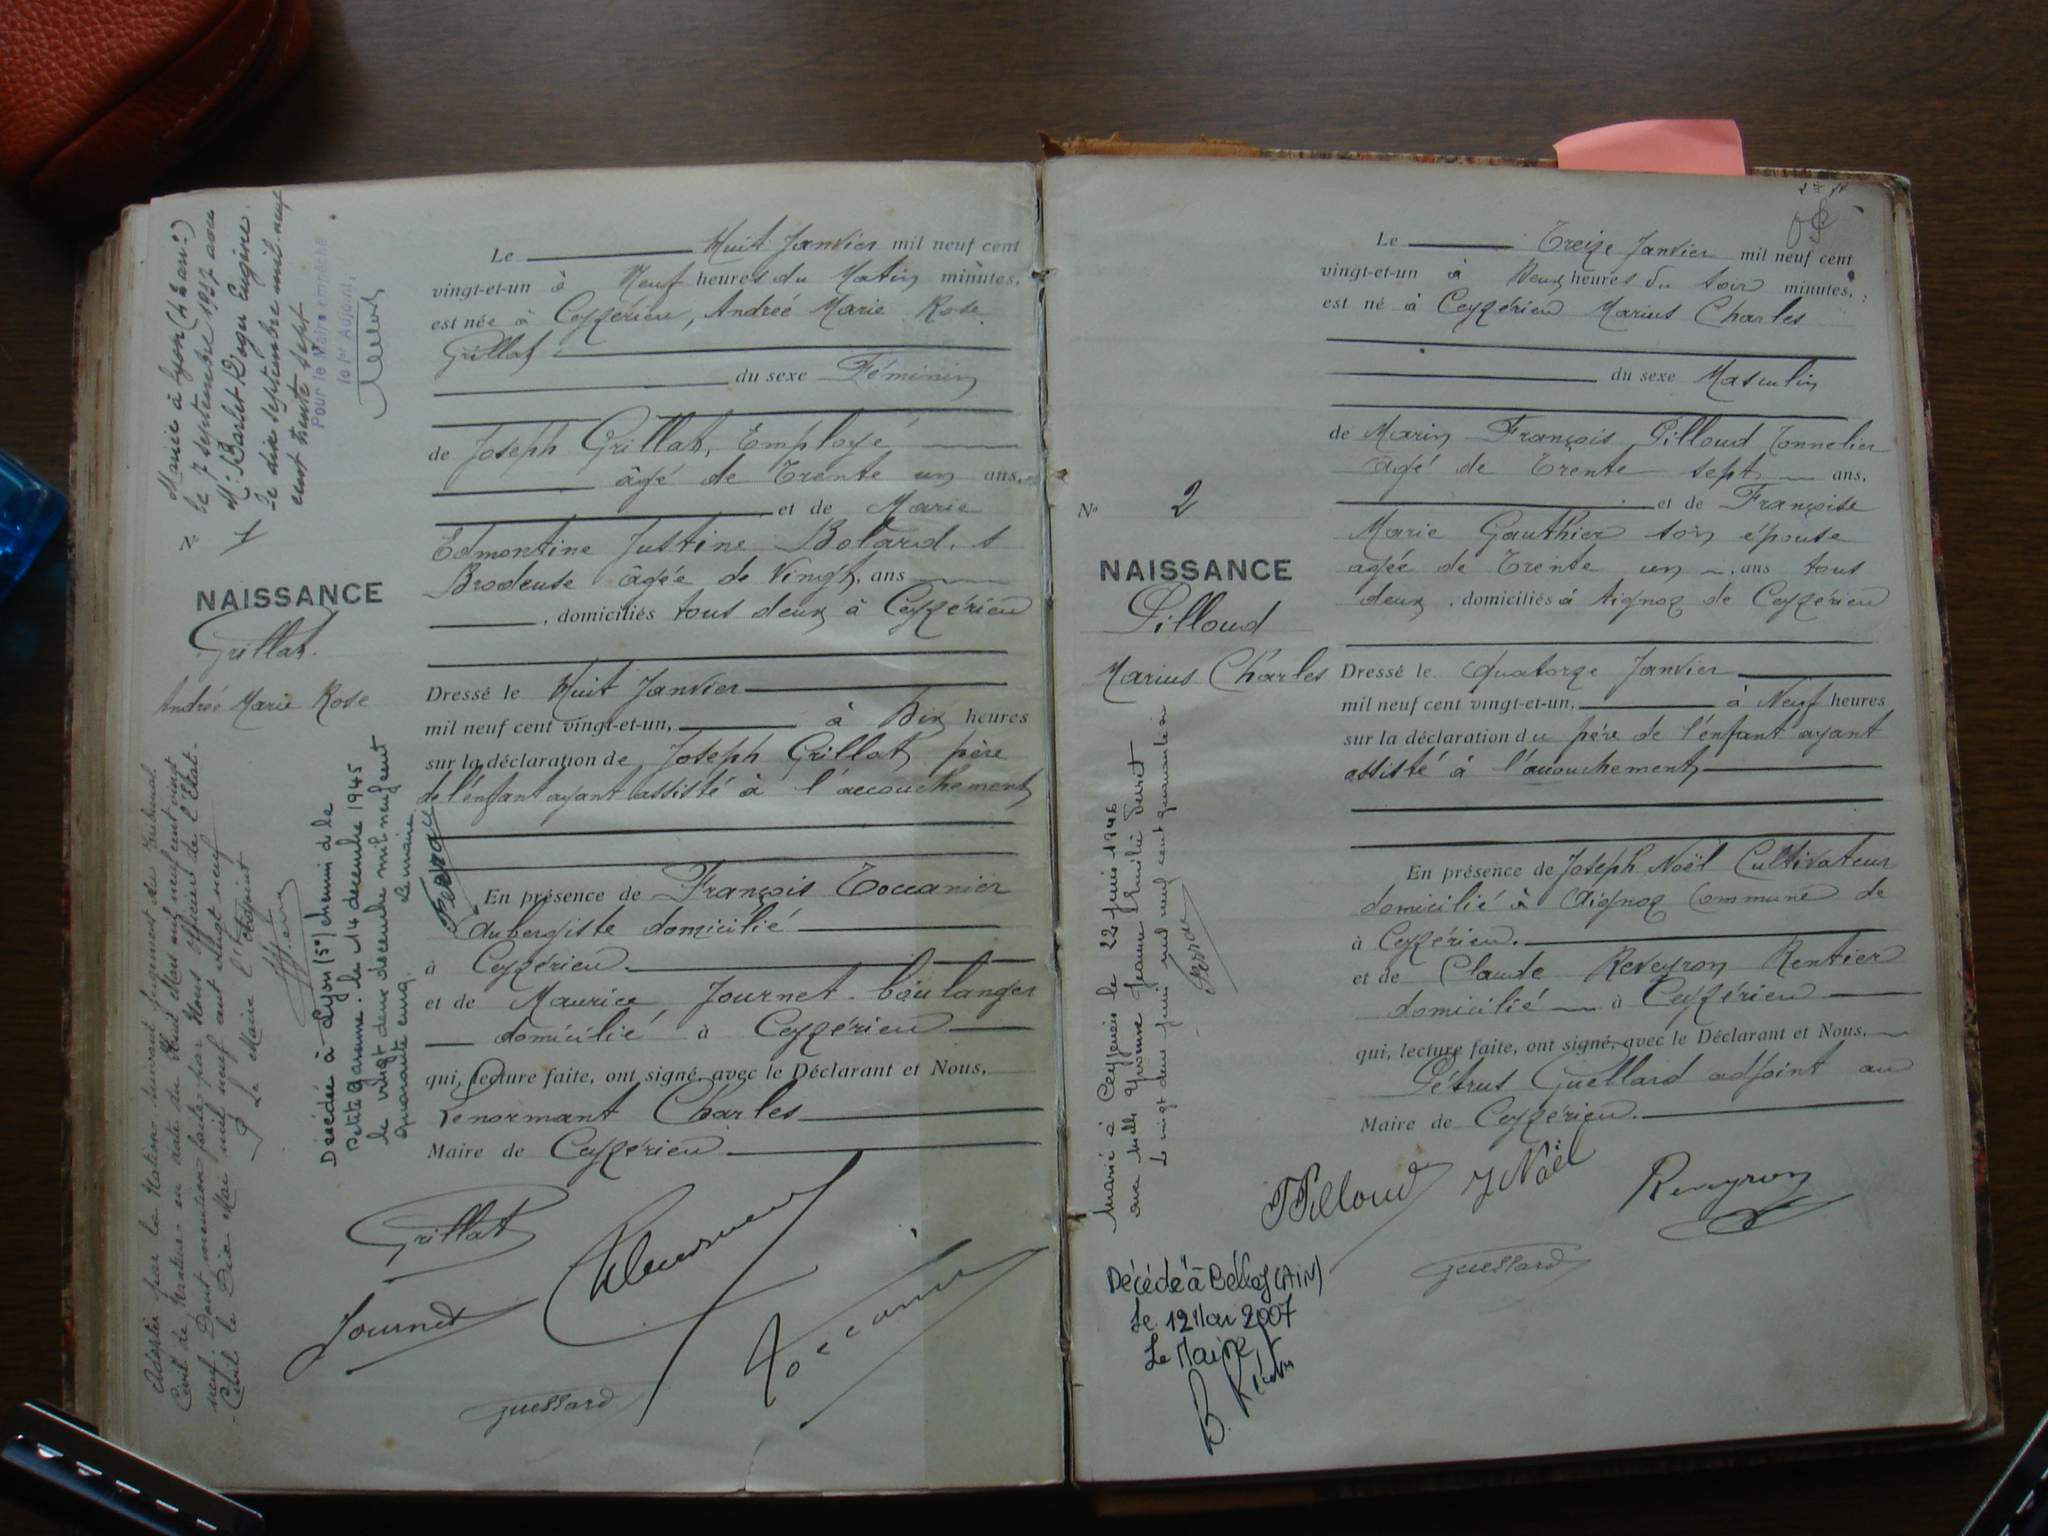 Mariée à Lyon
le 7 septembre 1937 avec
M. Barlet Roger Eugène.
Le dix septembre mil neuf
cent trente sept
Pour le Maire empêché
le 1er Adjoint,
N° 1
NAISSANCE
Grillat
Andrée Marie Rose
Adoptée par la Nation suivant jugement du Tribunal
Civil de en date du Huit Mars mil neuf cent vingt
neuf. Dont mention faite par Nous officier de l'Etat
Civil le Dix Mai mil neuf cent vingt neuf
P. Le Maire l'Adjoint
Décédée à Lyon (5°) chemin de la
Petite Garenne. le 14 décembre 1945
le vingt deux decembre mil neuf cent
quarante cinq. Le maire
Le Huit Janvier mil neuf cent
vingt-et-un à Neuf heures du Matin minutes,
est née à Ceyzérieu, Andrée Marie Rose
Grillat
du sexe Féminin
de Joseph Grillat, Employé
âgé de Trente un ans,
et de Marie
Edmontine Justine Bolard, s
Brodeuse âgée de Vingt, ans
, domiciliés tous deux à Ceyzérieu
Dressé le Huit Janvier
mil neuf cent vingt-et-un, à Dix heures
sur la déclaration de Joseph Grillat père
de l'enfant ayant assisté à l'accouchement
En présence de François Toccanier
Aubergiste domicilié
à Ceyzérieu.
et de Maurice Journet. boulanger
domicilié à Ceyzérieu
qui, lecture faite, ont signé, avec le Déclarant et Nous,
Lenormant Charles
Maire de Ceyzérieu
Grillat
Journet
Toccanier
Guettard
N° 2
NAISSANCE
Pilloud
Marius Charles
Marié à Ceyzérieu le 22 juin 1946
avec Melle Yvonne Jeanne Emilie
Le vingt deux juin mil neuf cent quarante six
Décédé à Belley (AIN)
Le 12 Mai 2007
Le Maire,
Le Treize Janvier mil neuf cent
vingt-et-un à Deux heures du soir minutes,
est né à Ceyzérieu Marius Charles
du sexe Masculin
de Marin François Pilloud Tonnelier
âgé de Trente sept ans,
et de Françoise
Marie Gauthier son épouse
agée de Trente un, ans tous
deux, domiciliés à Aignoz de Ceyzérieu
Dressé le Quatorze Janvier
mil neuf cent vingt-et-un, à Neuf heures
sur la déclaration du père de l'enfant ayant
assisté à l'accouchement
En présence de Joseph Noël Cultivateur
domicilié à Aignoz Commune de
à Ceyzérieu.
et de Claude Reveyron Rentier
domicilié à Ceyzérieu
qui, lecture faite, ont signé, avec le Déclarant et Nous,
Pétrus Guettard adjoint au
Maire de Ceyzérieu.
Pilloud J Noël Reveyron
Guettard